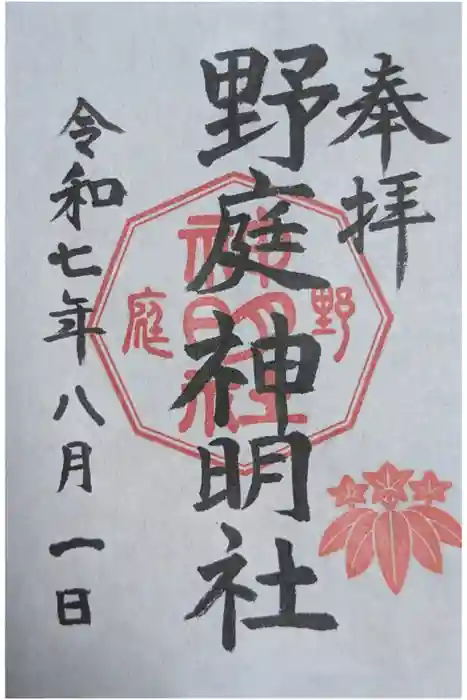 奉拝
野庭神明社
野庭
神明社
令和七年八月一日